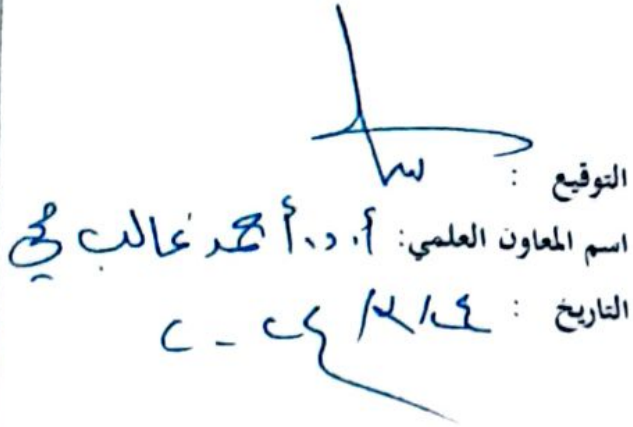 التوقيع :
اسم المعاون العلمي: أ.د. أحمد غالب محي
التاريخ :